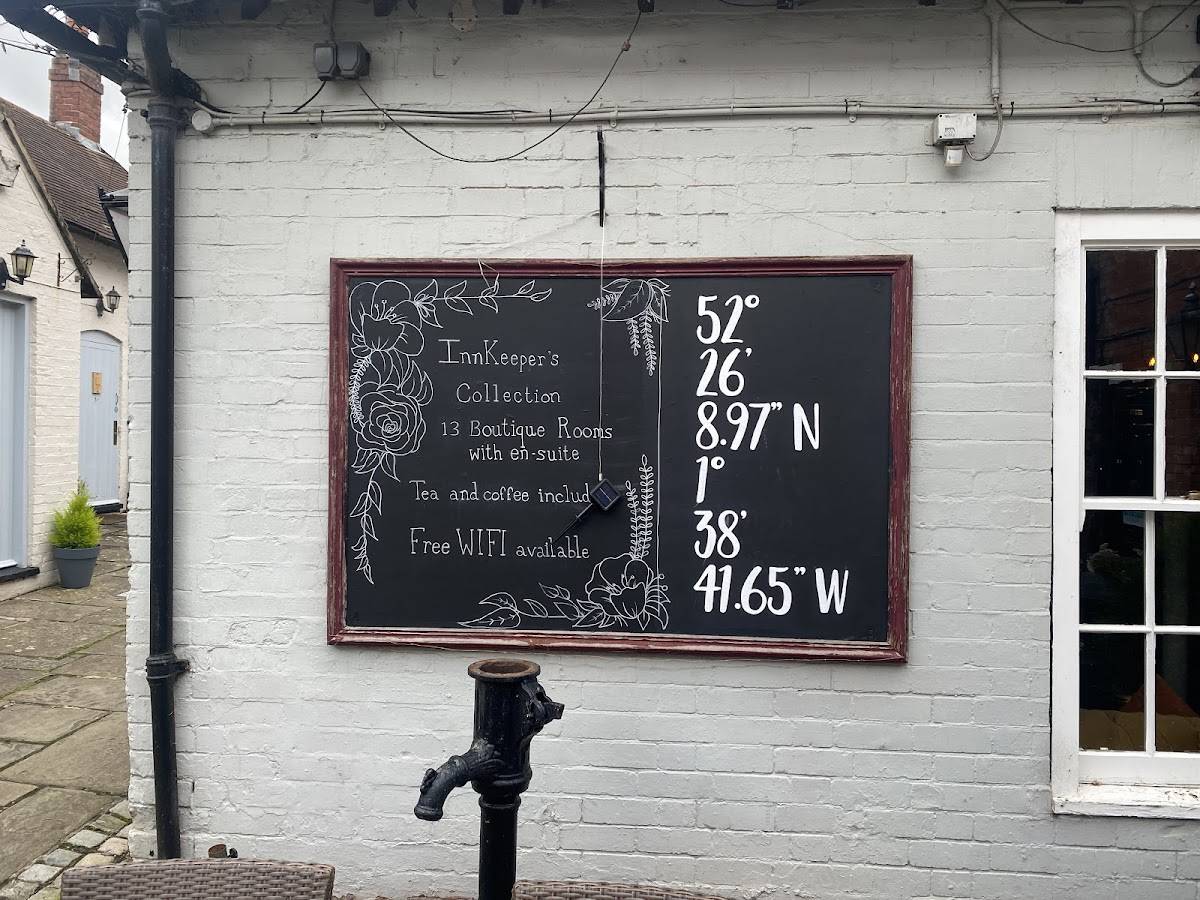 InnKeeper's
Collection
13 Boutique Rooms
with en-suite
Tea and coffee
Free WIFI available
52°
26'
8.97" N
1°
38'
41.65" W